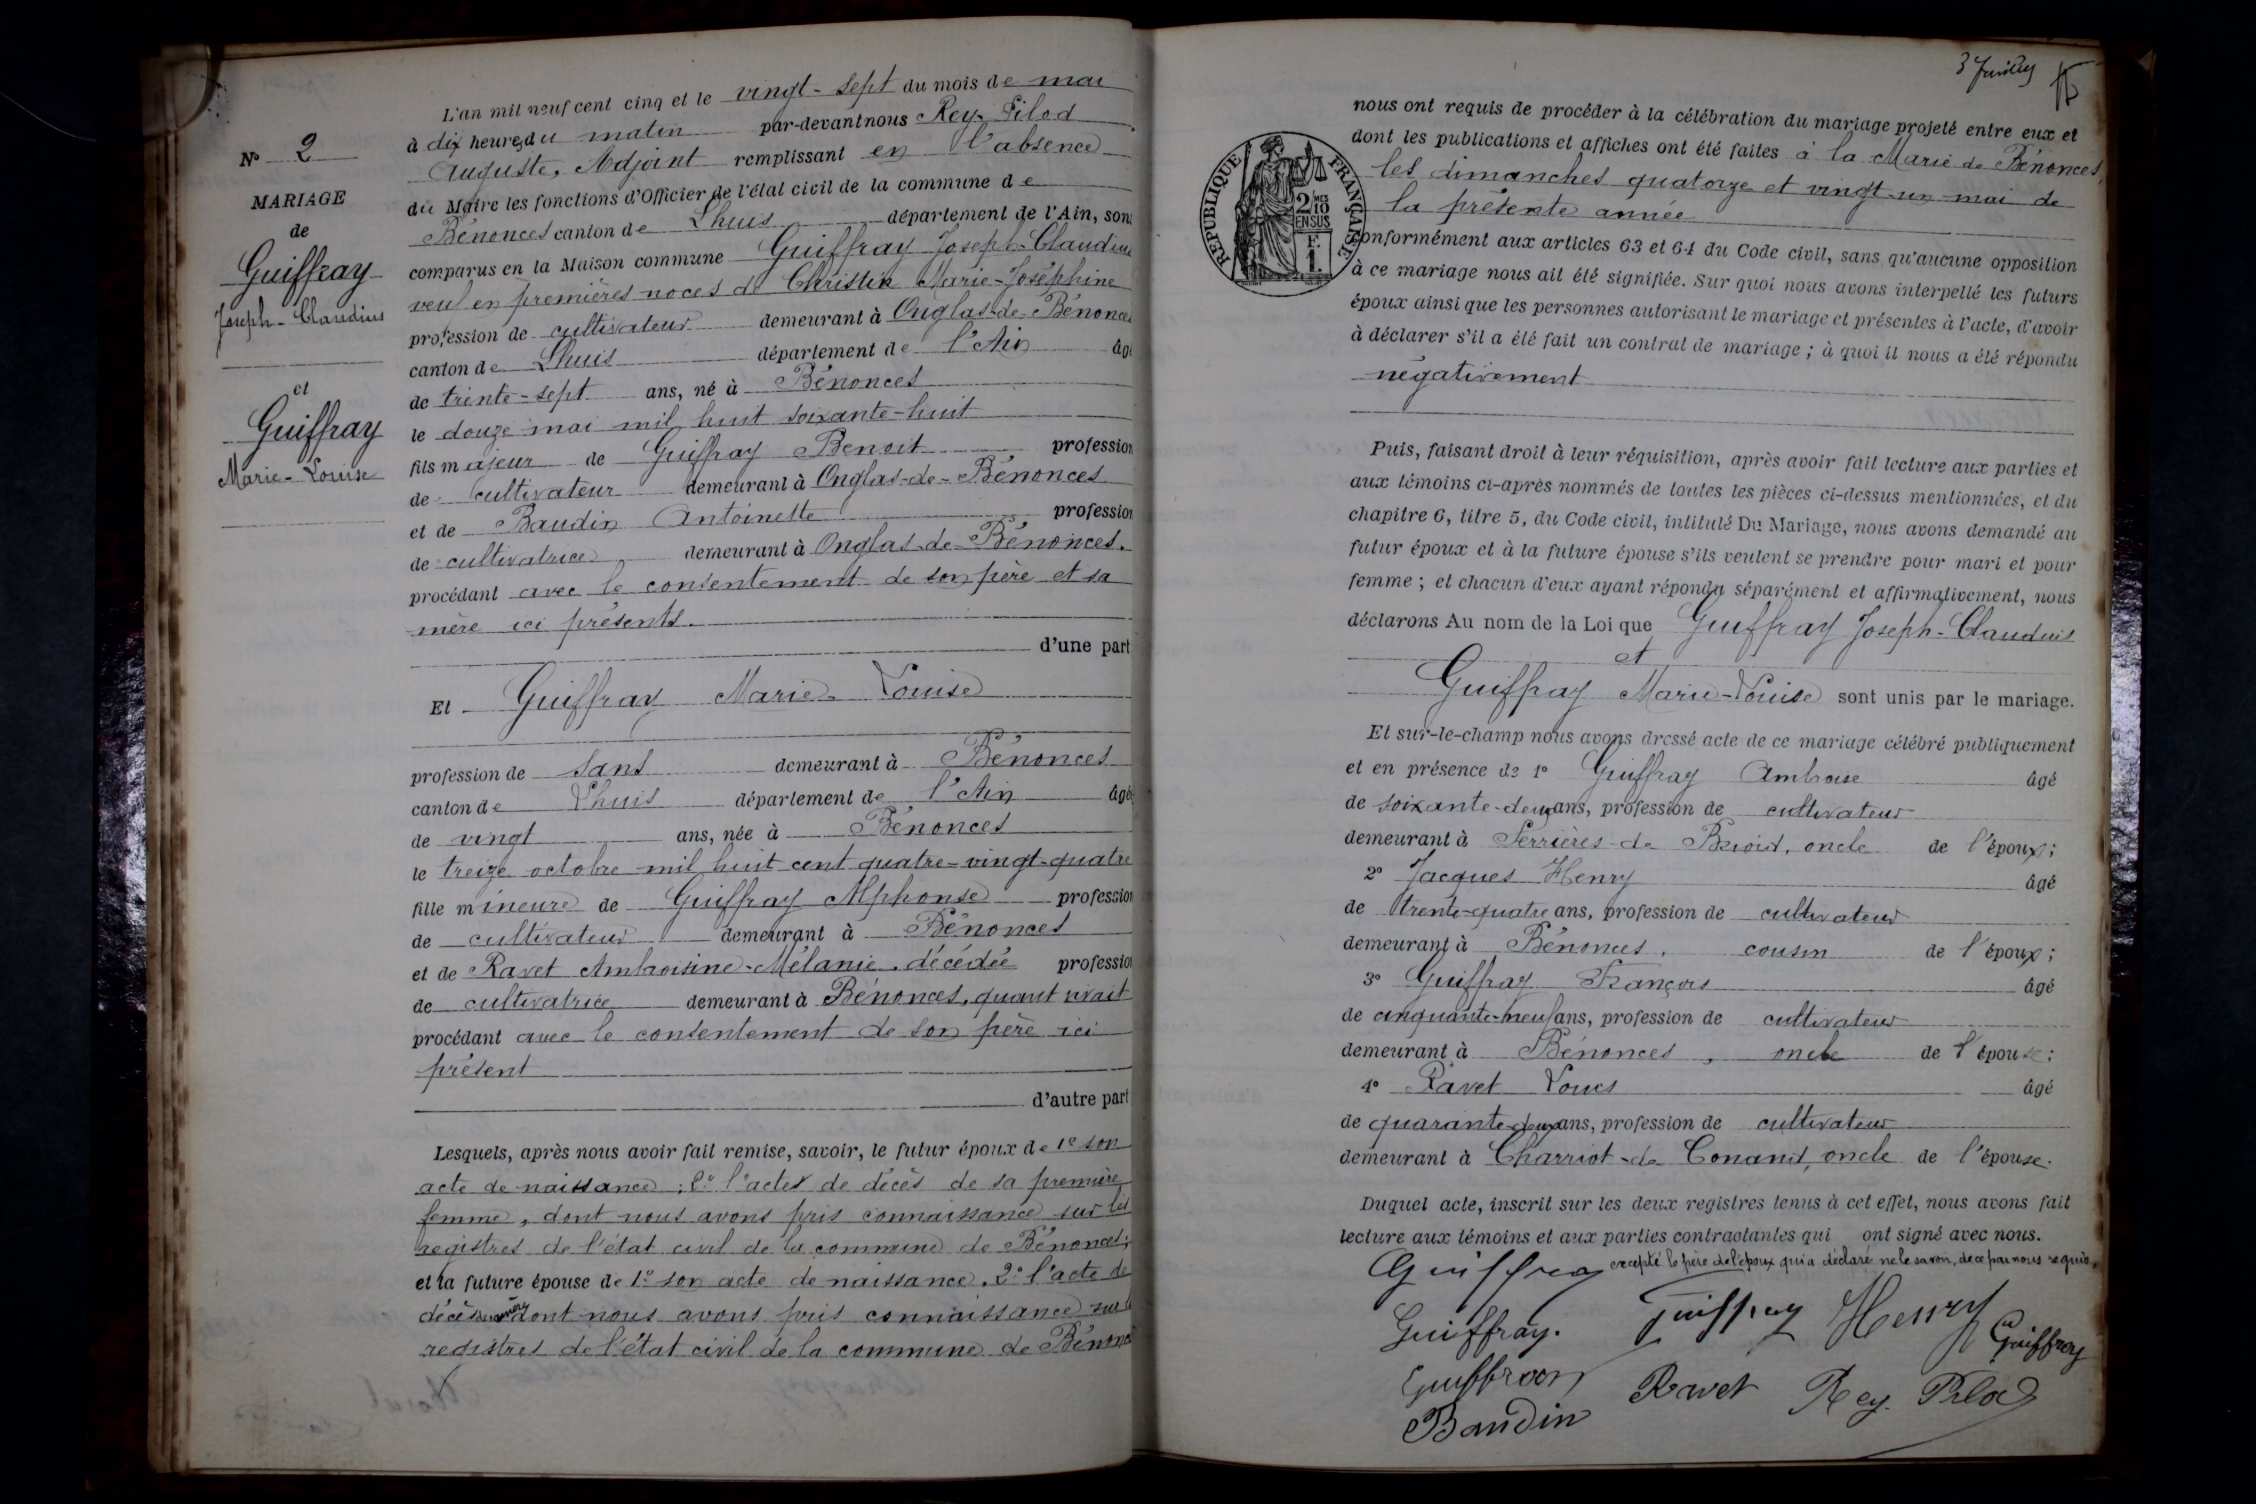 N° 2
MARIAGE
de
Guiffray
Joseph-Claudius
et
Guiffray
Marie-Louise
L'an mil neuf cent cinq et le vingt-sept du mois de mai
à dix heures du matin par-devant nous Rey-Pilod
Auguste, Adjoint remplissant en l'absence
du Maire les fonctions d'Officier de l'état civil de la commune de
Bénonces canton de Lhuis département de l'Ain, sont
comparus en la Maison commune Guiffray Joseph-Claudius
veuf en premières noces de Christin Marie-Joséphine
profession de cultivateur demeurant à Onglas-de-Bénonces
canton de Lhuis département de l'Ain âgé
de trente-sept ans, né à Bénonces
le douze mai mil huit soixante-huit
fils majeur de Guiffray Benoit profession
de cultivateur demeurant à Onglas-de-Bénonces
et de Baudin Antoinette profession
de cultivatrice demeurant à Onglas-de-Bénonces.
procédant avec le consentement de son père et sa
mère ici présents.
d'une part
Et Guiffray Marie-Louise
profession de sans demeurant à Bénonces
canton de Lhuis département de l'Ain âgée
de vingt ans, née à Bénonces
le treize octobre mil huit cent quatre-vingt-quatre
fille mineure de Guiffray Alphonse profession
de cultivateur demeurant à Bénonces
et de Ravet Ambroisine-Mélanie, décédée profession
de cultivatrice demeurant à Bénonces, quant vivait
procédant avec le consentement de son père ici
présent
d'autre part
Lesquels, après nous avoir fait remise, savoir, le futur époux de 1° son
acte de naissance; 2° l'acte de décès de sa première
femme, dont nous avons pris connaissance sur les
registres de l'état civil de la commune de Bénonces;
et la future épouse de 1° son acte de naissance. 2° l'acte de
décès mère dont nous avons pris connaissance sur les
registres de l'état civil de la commune de Bénonces
3
nous ont requis de procéder à la célébration du mariage projeté entre eux et
dont les publications et affiches ont été faites à la Marie de Bénonces,
les dimanches quatorze et vingt-un mai de
la présente année
RÉPUBLIQUE FRANÇAISE
2 MES
10
EN SUS
F.
1.
conformément aux articles 63 et 64 du Code civil, sans qu'aucune opposition
à ce mariage nous ait été signifiée. Sur quoi nous avons interpellé les futurs
époux ainsi que les personnes autorisant le mariage et présentes à l'acte, d'avoir
à déclarer s'il a été fait un contrat de mariage; à quoi il nous a été répondu
négativement
Puis, faisant droit à leur réquisition, après avoir fait lecture aux parties et
aux témoins ci-après nommés de toutes les pièces ci-dessus mentionnées, et du
chapitre 6, titre 5, du Code civil, intitulé Du Mariage, nous avons demandé au
futur époux et à la future épouse s'ils veulent se prendre pour mari et pour
femme; et chacun d'eux ayant répondu séparément et affirmativement, nous
déclarons Au nom de la Loi que Guiffray Joseph-Claudius
et
Guiffray Marie-Louise sont unis par le mariage.
Et sur-le-champ nous avons dressé acte de ce mariage célébré publiquement
et en présence de 1° Guiffray Ambroise âgé
de soixante-deux ans, profession de cultivateur
demeurant à Serrières-de-Briord, oncle de l'époux;
2° Jacques Henry âgé
de trente-quatre ans, profession de cultivateur
demeurant à Bénonces, cousin de l'époux;
3° Guiffray François âgé
de cinquante-neuf ans, profession de cultivateur
demeurant à Bénonces, oncle de l'épouse;
4° Ravet Louis âgé
de quarante-deux ans, profession de cultivateur
demeurant à Charriot-de Conand, oncle de l'épouse.
Duquel acte, inscrit sur les deux registres tenus à cet effet, nous avons fait
lecture aux témoins et aux parties contractantes qui ont signé avec nous.
excepté le père de l'époux qui a déclaré ne le savoir, de ce par nous requis.
Guiffray
Guiffray. Guiffray Henry Guiffray
Ravet Rey-Pilod
Baudin